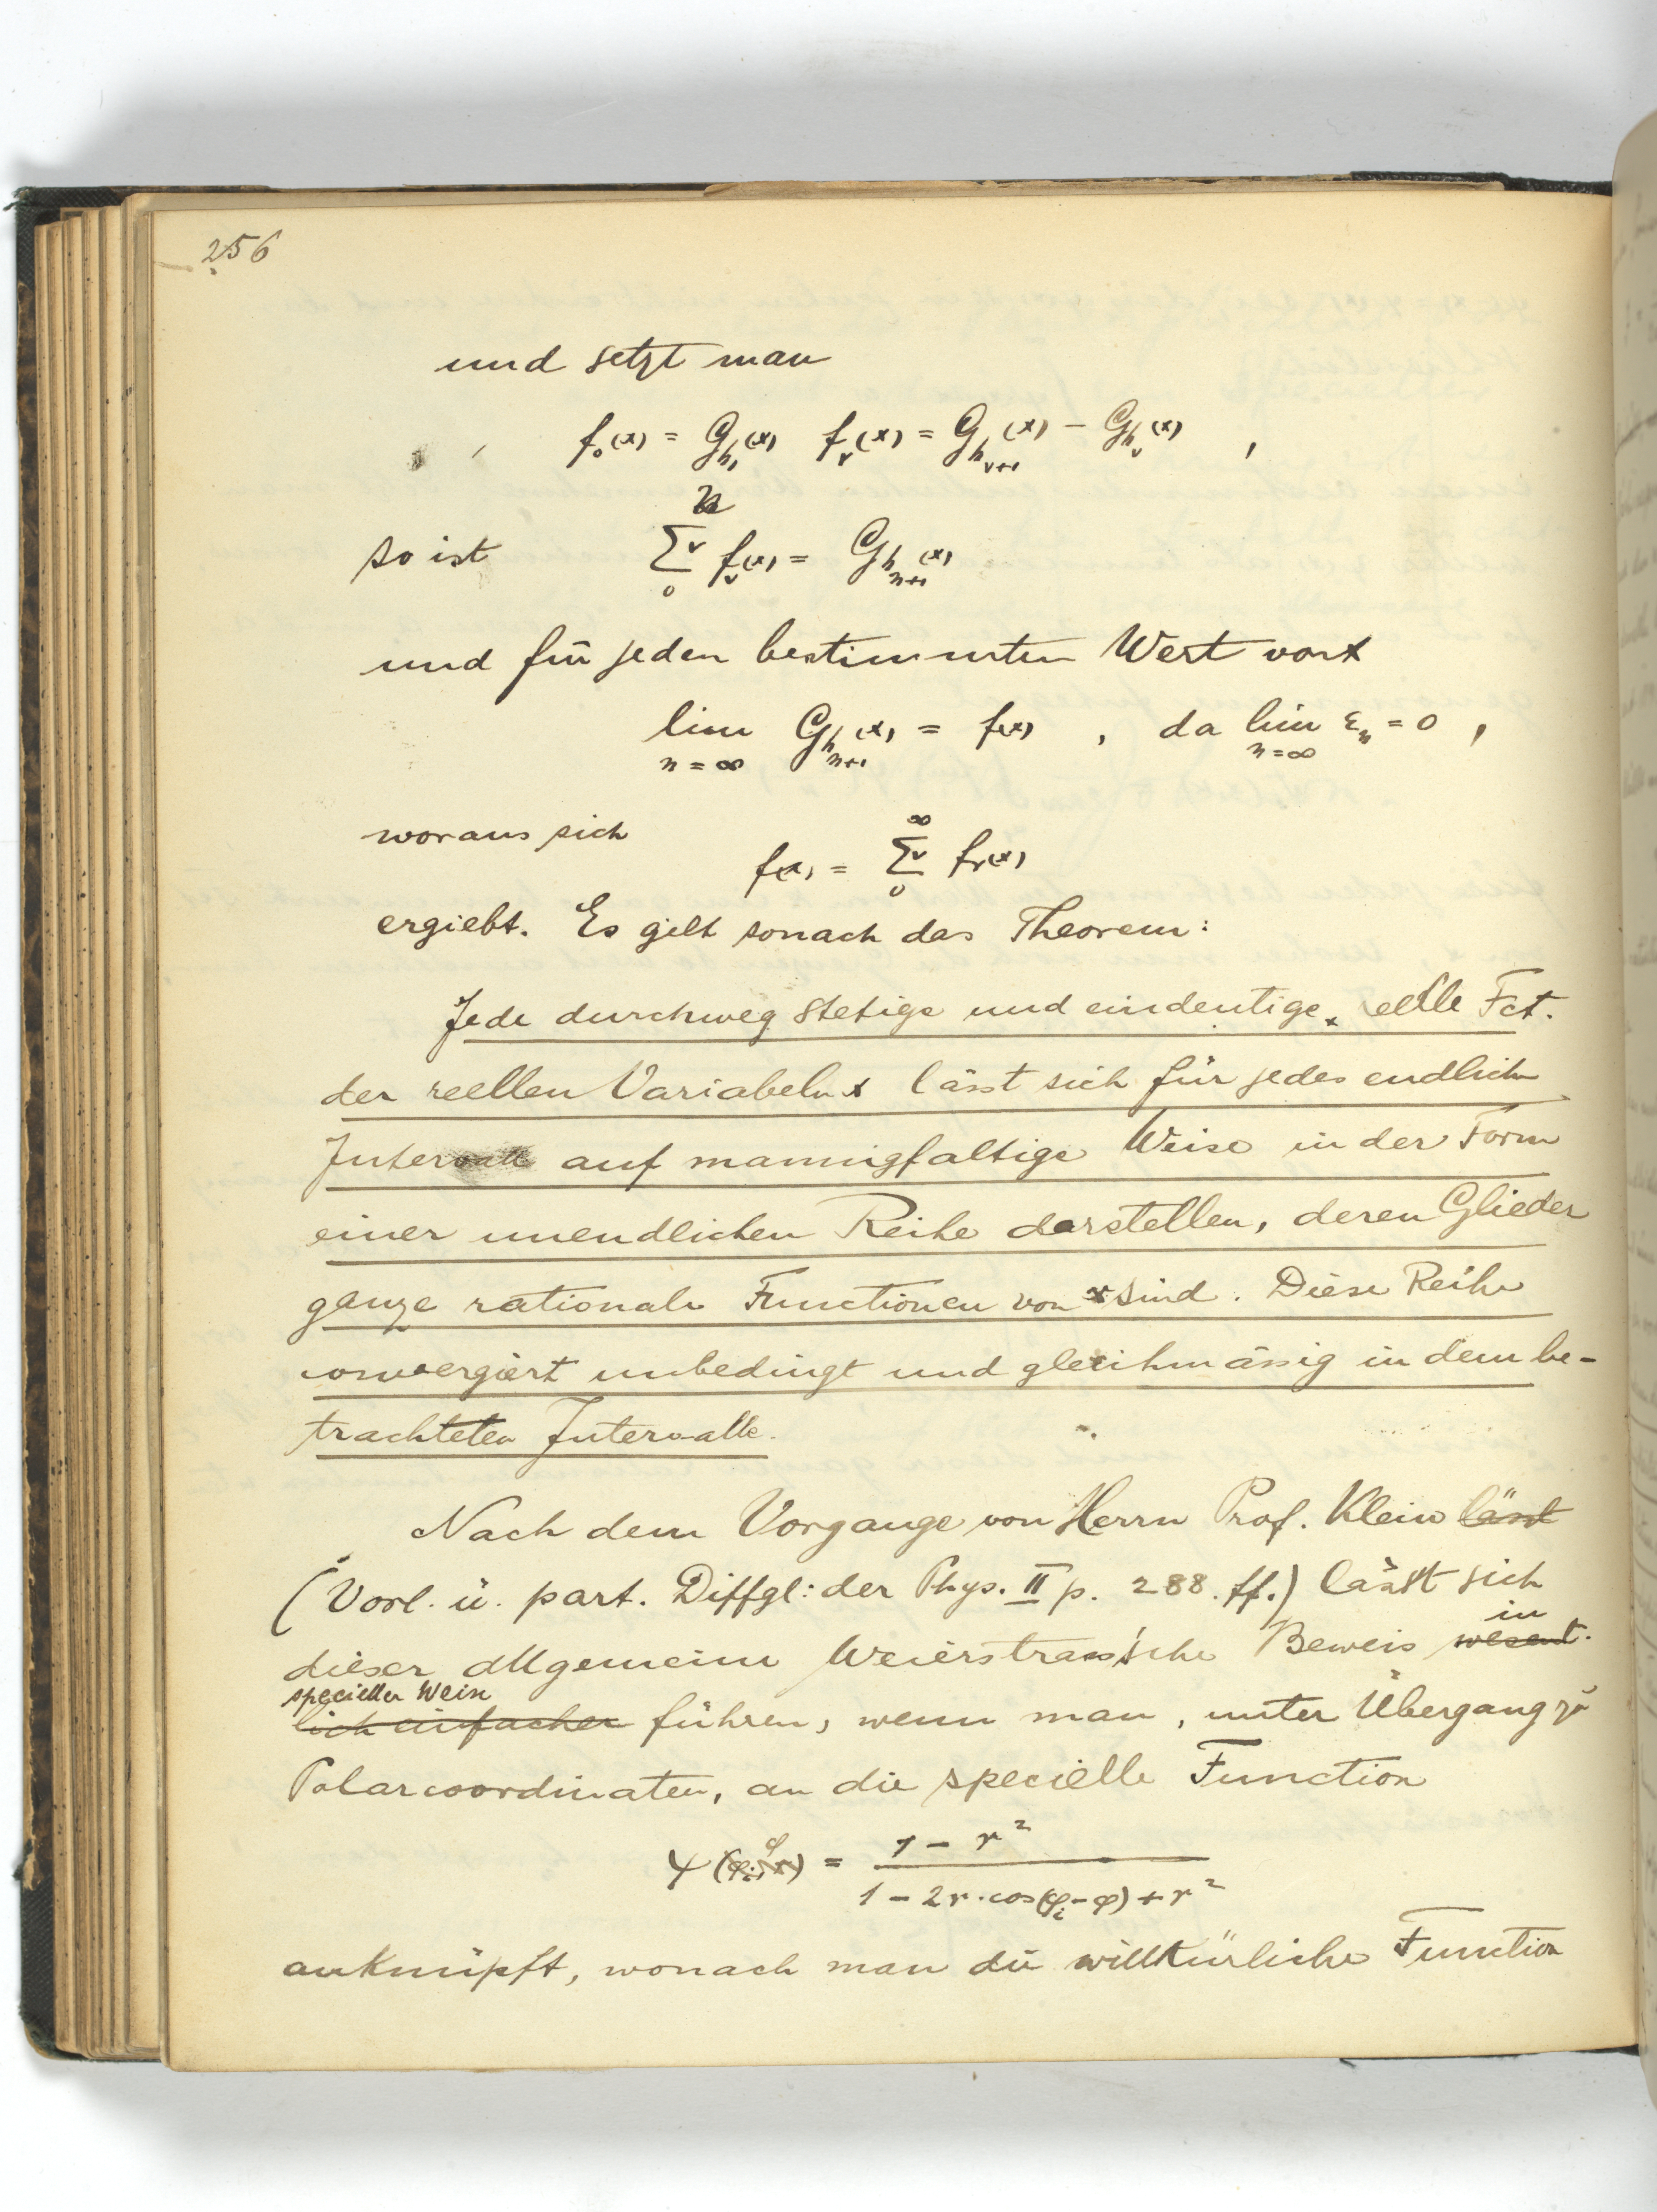 256
und setzt man
f₀(x) = G_{h₁}(x) f_ν(x) = G_{h_{ν+1}}(x) − G_{h_ν}(x) ,
so ist ∑_0^n ν f_ν(x) = G_{h_{n+1}}(x)
und für jeden bestimmten Wert von x
lim_{n=∞} G_{h_{n+1}}(x) = f(x) , da lim_{n=∞} ε_n = 0 ,
woraus sich
f(x) = ∑_0^∞ ν f_ν(x)
ergiebt. Es gilt sonach das Theorem:
Jede durchweg stetige und eindeutige reelle Fct.
der reellen Variabeln x lässt sich für jedes endliche
Intervall auf mannigfaltige Weise in der Form
einer unendlichen Reihe darstellen, deren Glieder
ganze rationale Functionen von x sind. Diese Reihe
convergiert unbedingt und gleichmässig in dem be-
trachteten Intervalle.
Nach dem Vorgange von Herrn Prof. Klein lässt
(Vorl. ü. part. Diffgl: der Phys. II p. 288. ff.) lässt sich
dieser allgemeine Weierstrass'sche Beweis wesent- in
specieller Weise
lich einfacher führen, wenn man, unter Übergang zu
Polarcoordinaten, an die specielle Function
ψ(φ) = (1 − r²) / (1 − 2r·cos(φ_i − φ) + r²)
anknüpft, wonach man die willkürliche Function